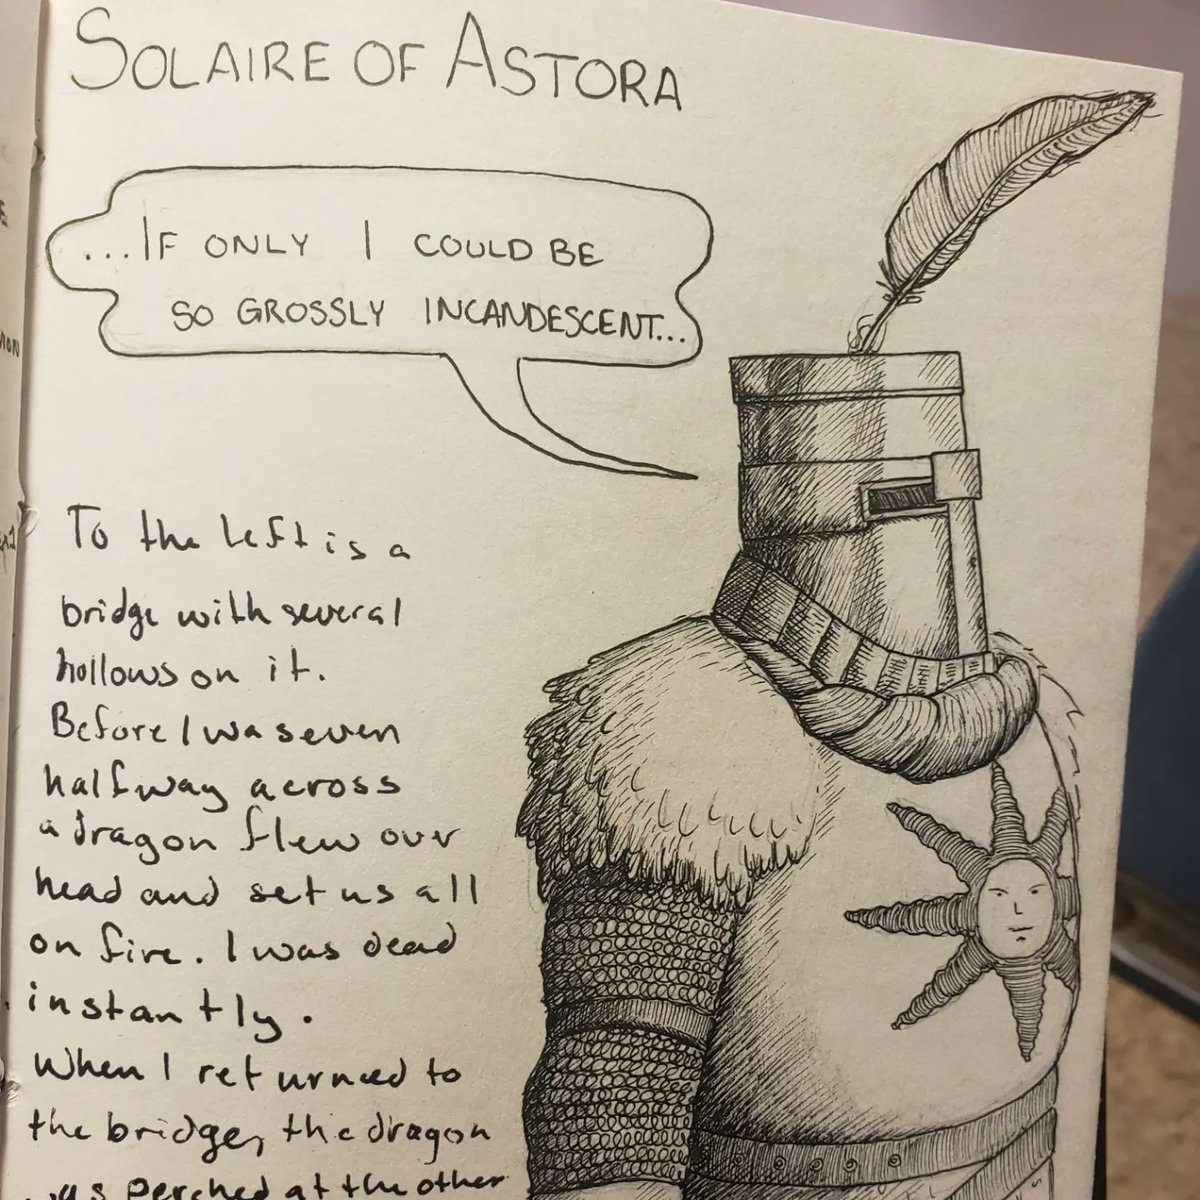 SOLAIRE OF ASTORA
...IF ONLY I COULD BE
SO GROSSLY INCANDESCENT...
To the left is a
bridge with several
hollows on it.
Before I was even
halfway across
a dragon flew over
head and set us all
on fire. I was dead
instantly.
When I returned to
the bridge, the dragon
was perched at the other